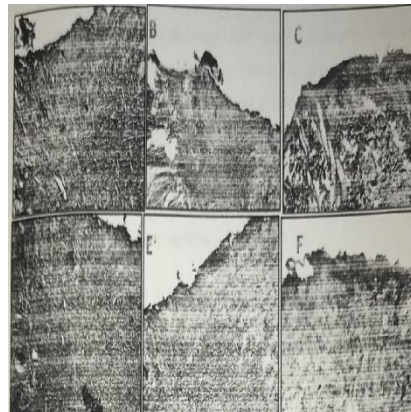 B
C
E
F